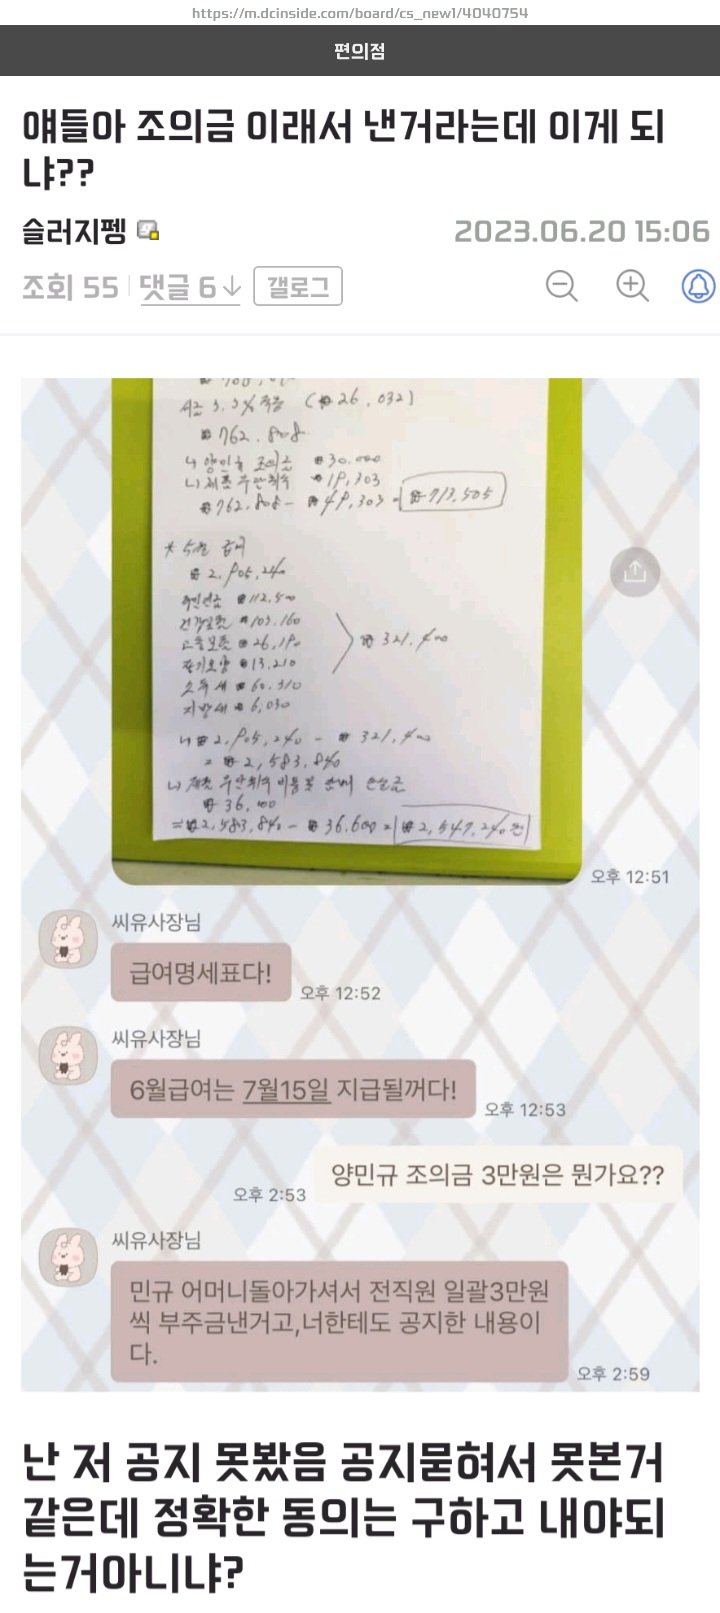 https://m.dcinside.com/board/cs_new1/4040754
편의점
얘들아 조의금 이래서 낸거라는데 이게 되
냐??
슬러지펭
2023.06.20 15:06
조회 55 댓글 6↓ 갤로그
3.3% 적용 (₩26,032)
₩762,808
조의금 ₩30,000
₩19,303
₩762,808 - ₩49,303 = ₩713,505
* 5월 급여
₩2,905,240
국민연금 ₩112,500
건강보험 ₩103,160
고용보험 ₩26,190
장기요양 ₩13,210
₩321,400
소득세 ₩60,310
지방세 ₩6,030
↳ ₩2,905,240 - ₩321,400
= ₩2,583,840
₩36,600
= ₩2,583,840 - ₩36,600 = ₩2,547,240원
오후 12:51
씨유사장님
급여명세표다!
오후 12:52
씨유사장님
6월급여는 7월15일 지급될꺼다!
오후 12:53
양민규 조의금 3만원은 뭔가요??
오후 2:53
씨유사장님
민규 어머니돌아가셔서 전직원 일괄3만원
씩 부주금낸거고,너한테도 공지한 내용이
다.
오후 2:59
난 저 공지 못봤음 공지묻혀서 못본거
같은데 정확한 동의는 구하고 내야되
는거아니냐?